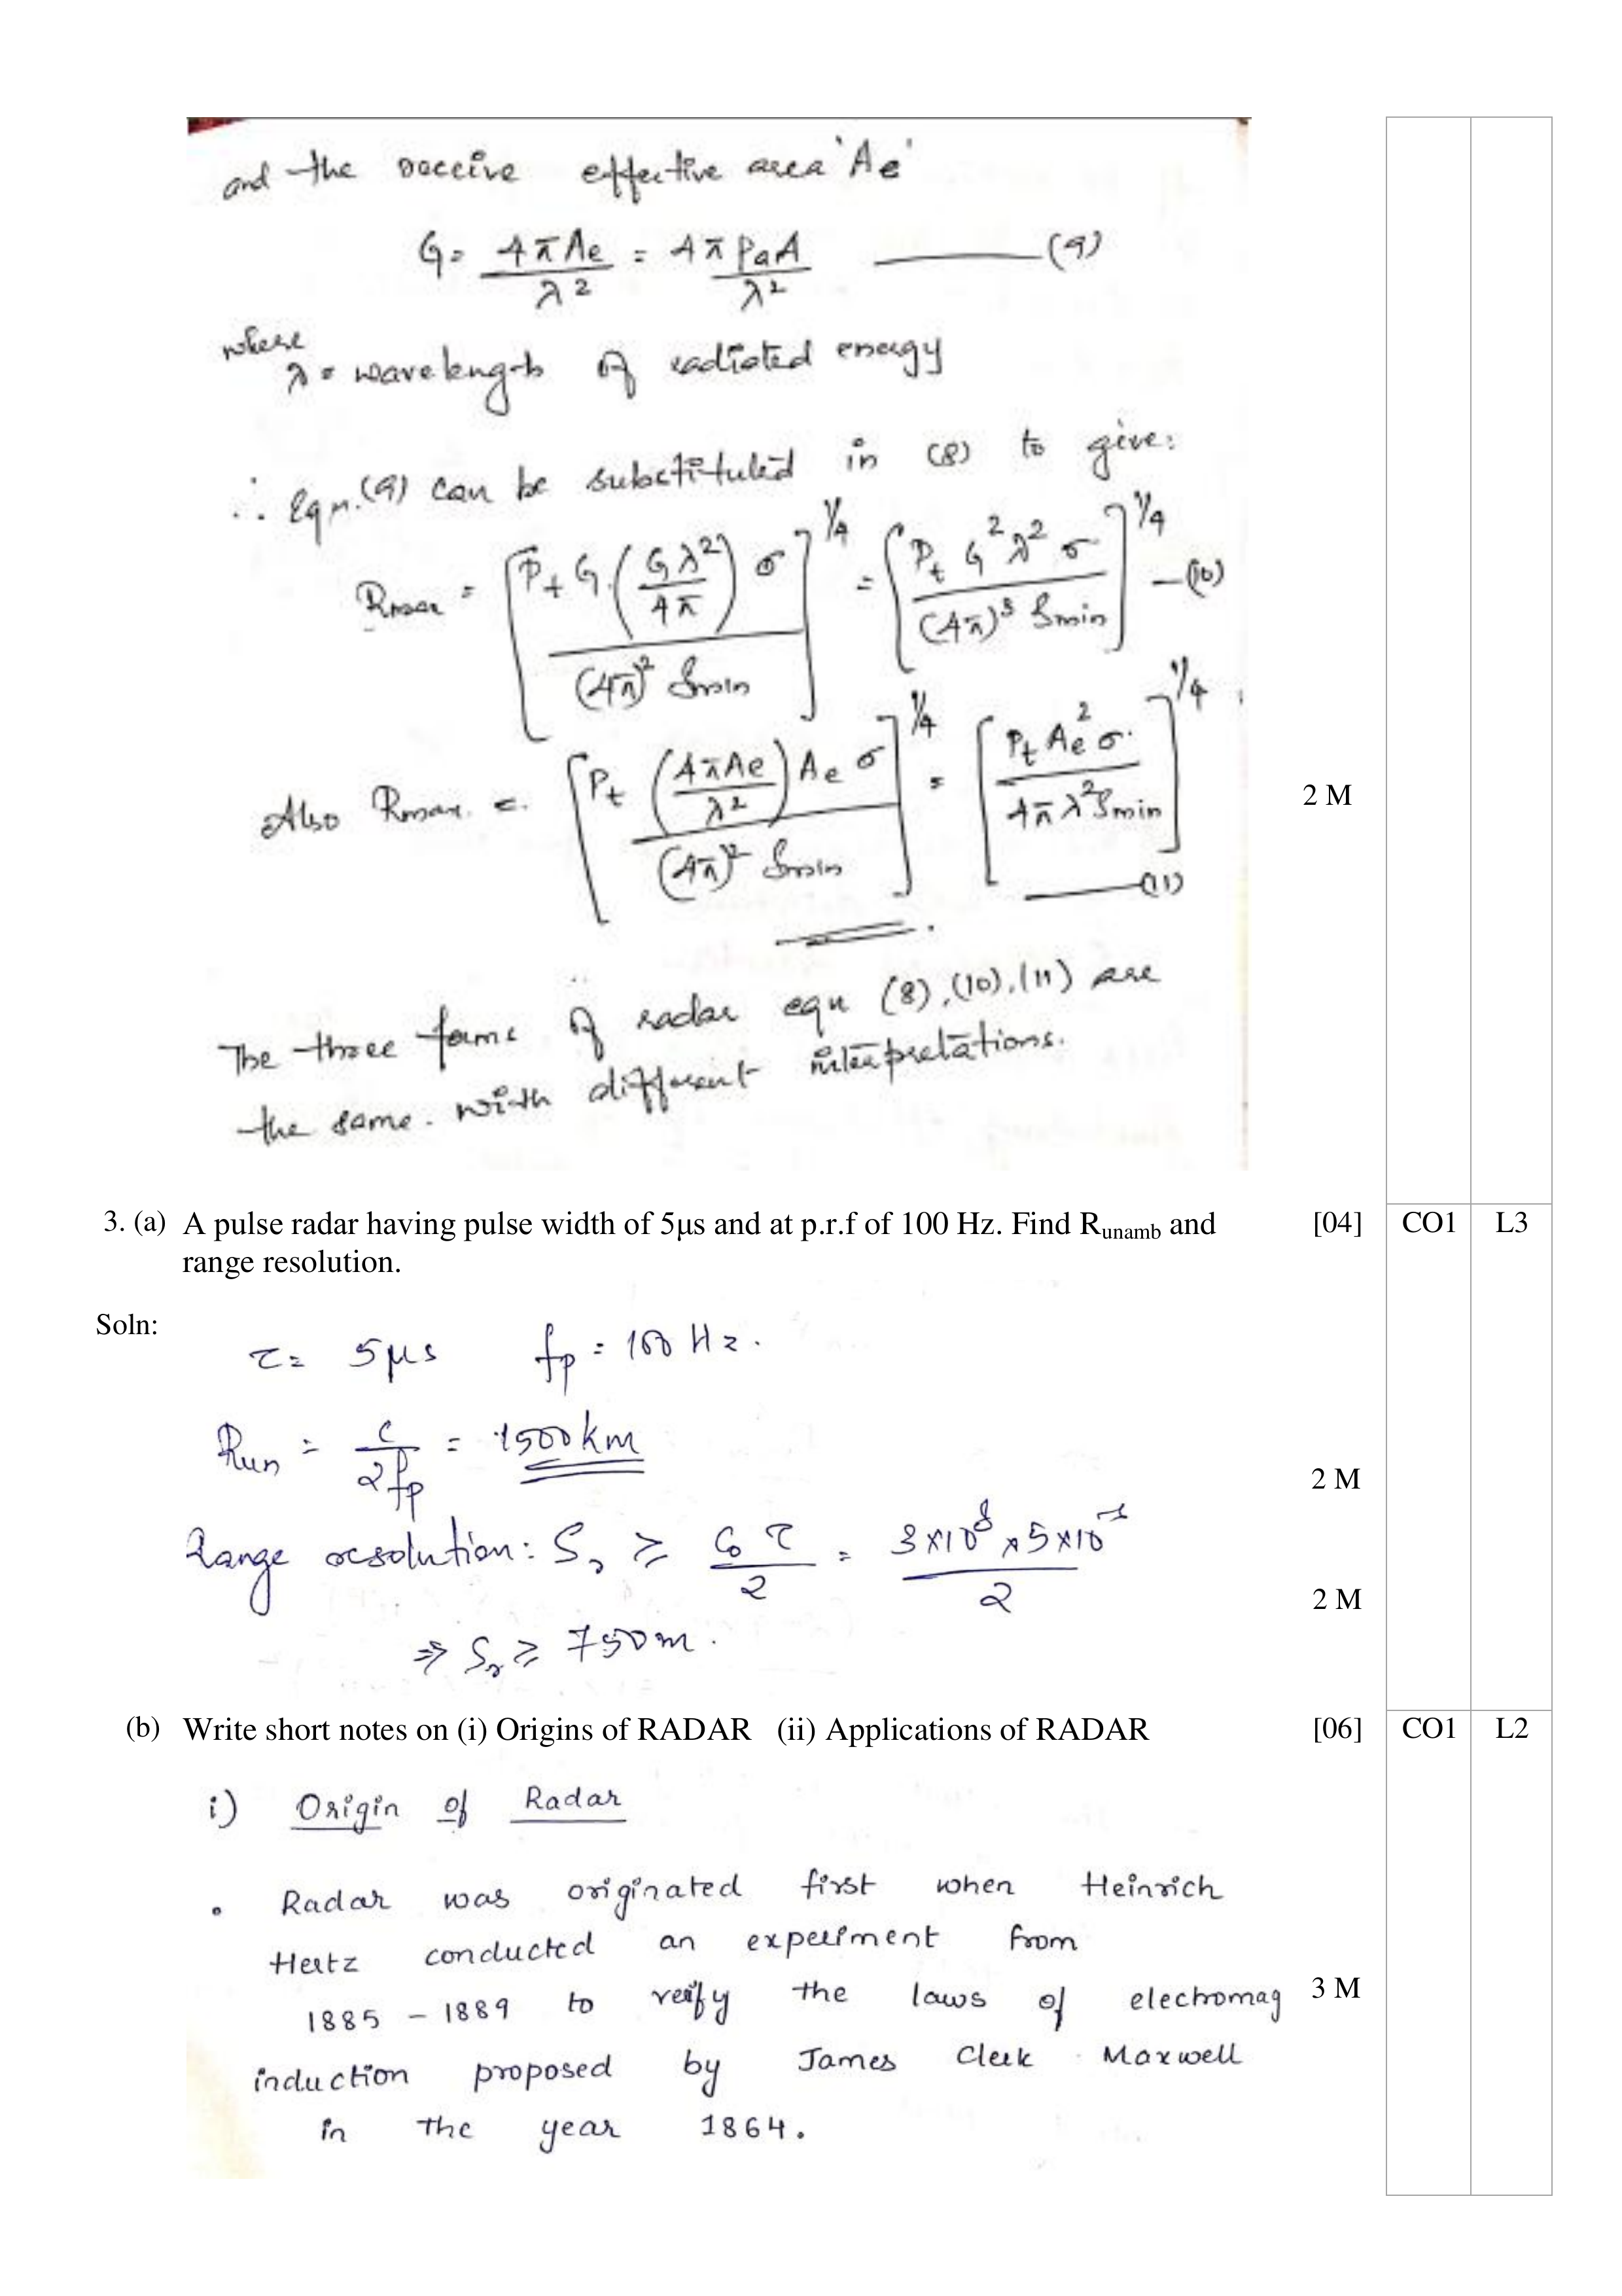 and the receive effective area 'Ae'
G = 4πAe/λ² = 4π ρaA/λ² ——— (9)
where
λ = wavelength of radiated energy
∴ Eqn. (9) can be substituted in (8) to give:
Rmax = [Pt G (Gλ²/4π) σ / (4π)² Smin]^1/4 = [Pt G² λ² σ / (4π)³ Smin]^1/4 — (10)
Also Rmax. = [Pt (4πAe/λ²) Ae σ / (4π)² Smin]^1/4 = [Pt Ae² σ / 4π λ² Smin]^1/4
2 M
——— (11)
The three forms of radar eqn (8), (10), (11) are
the same. with different interpretations.
3. (a) A pulse radar having pulse width of 5μs and at p.r.f of 100 Hz. Find Runamb and [04] CO1 L3
range resolution.
Soln:
τ = 5μs fp = 100 Hz.
Run = c/2fp = 1500km
2 M
Range resolution: Sr ≥ C₀ τ/2 = 3×10⁸ × 5×10 /2
2 M
⇒ Sr ≥ 750m.
(b) Write short notes on (i) Origins of RADAR (ii) Applications of RADAR [06] CO1 L2
i) Origin of Radar
• Radar was originated first when Heinrich
Hertz conducted an experiment from
1885 – 1889 to verify the laws of electromag 3 M
induction proposed by James Clerk Maxwell
in the year 1864.